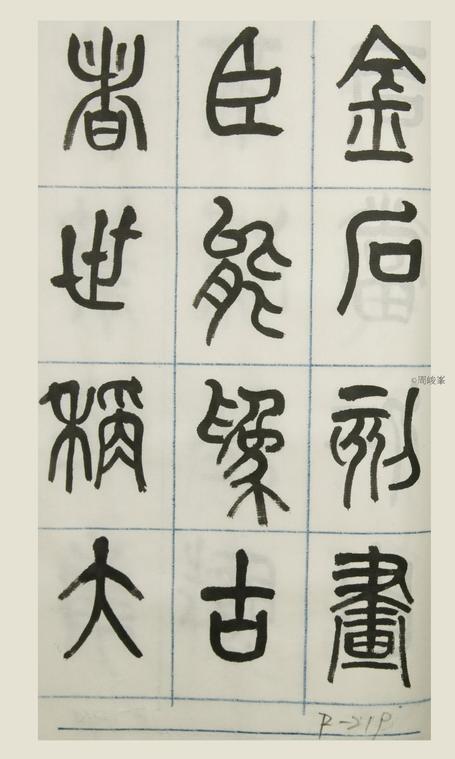 金石刻畫
臣能為古
者世稱大
©周峻峯